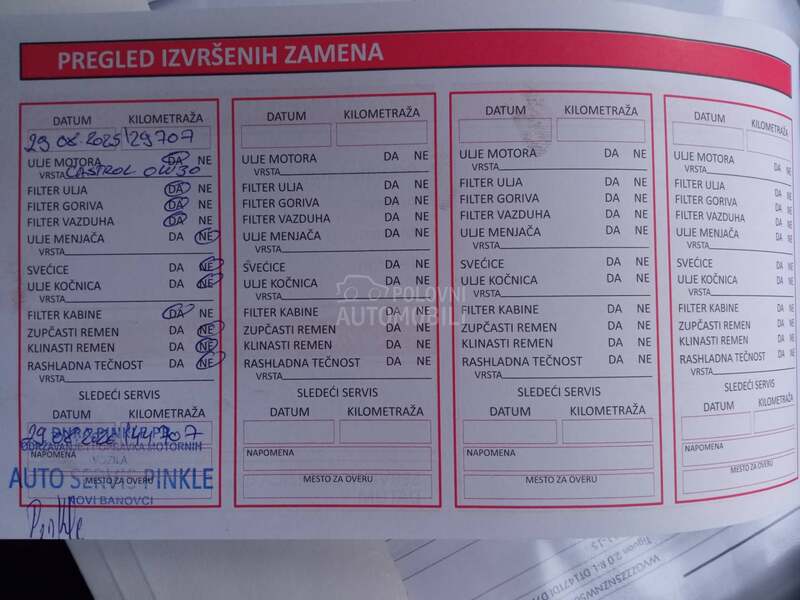 PREGLED IZVRŠENIH ZAMENA
DATUM KILOMETRAŽA
29.08.2025 129707
ULJE MOTORA DA NE
VRSTA CASTROL 0W30
FILTER ULJA DA NE
FILTER GORIVA DA NE
FILTER VAZDUHA DA NE
ULJE MENJAČA DA NE
VRSTA
SVEĆICE DA NE
ULJE KOČNICA DA NE
VRSTA
FILTER KABINE DA NE
ZUPČASTI REMEN DA NE
KLINASTI REMEN DA NE
RASHLADNA TEČNOST DA NE
VRSTA
SLEDEĆI SERVIS
DATUM KILOMETRAŽA
29.08.2026 144707
PINKLE
MOTORNIH
VOZILA
NAPOMENA
AUTO SERVIS PINKLE
MESTO ZA OVERU
NOVI BANOVCI
Pinkle
DATUM KILOMETRAŽA
ULJE MOTORA DA NE
VRSTA
FILTER ULJA DA NE
FILTER GORIVA DA NE
FILTER VAZDUHA DA NE
ULJE MENJAČA DA NE
VRSTA
SVEĆICE DA NE
ULJE KOČNICA DA NE
VRSTA
FILTER KABINE DA NE
ZUPČASTI REMEN DA NE
KLINASTI REMEN DA NE
RASHLADNA TEČNOST DA NE
VRSTA
SLEDEĆI SERVIS
DATUM KILOMETRAŽA
NAPOMENA
MESTO ZA OVERU
POLOVNI
AUTOMOBILI
DATUM KILOMETRAŽA
ULJE MOTORA DA NE
VRSTA
FILTER ULJA DA NE
FILTER GORIVA DA NE
FILTER VAZDUHA DA NE
ULJE MENJAČA DA NE
VRSTA
SVEĆICE DA NE
ULJE KOČNICA DA NE
VRSTA
FILTER KABINE DA NE
ZUPČASTI REMEN DA NE
KLINASTI REMEN DA NE
RASHLADNA TEČNOST DA NE
VRSTA
SLEDEĆI SERVIS
DATUM KILOMETRAŽA
NAPOMENA
MESTO ZA OVERU
DATUM KILOMETRAŽA
ULJE MOTORA DA NE
VRSTA
FILTER ULJA DA NE
FILTER GORIVA DA NE
FILTER VAZDUHA DA NE
ULJE MENJAČA DA NE
VRSTA
SVEĆICE DA NE
ULJE KOČNICA DA NE
VRSTA
FILTER KABINE DA NE
ZUPČASTI REMEN DA NE
KLINASTI REMEN DA NE
RASHLADNA TEČNOST DA NE
VRSTA
SLEDEĆI SERVIS
DATUM KILOMETRAŽA
NAPOMENA
MESTO ZA OVERU